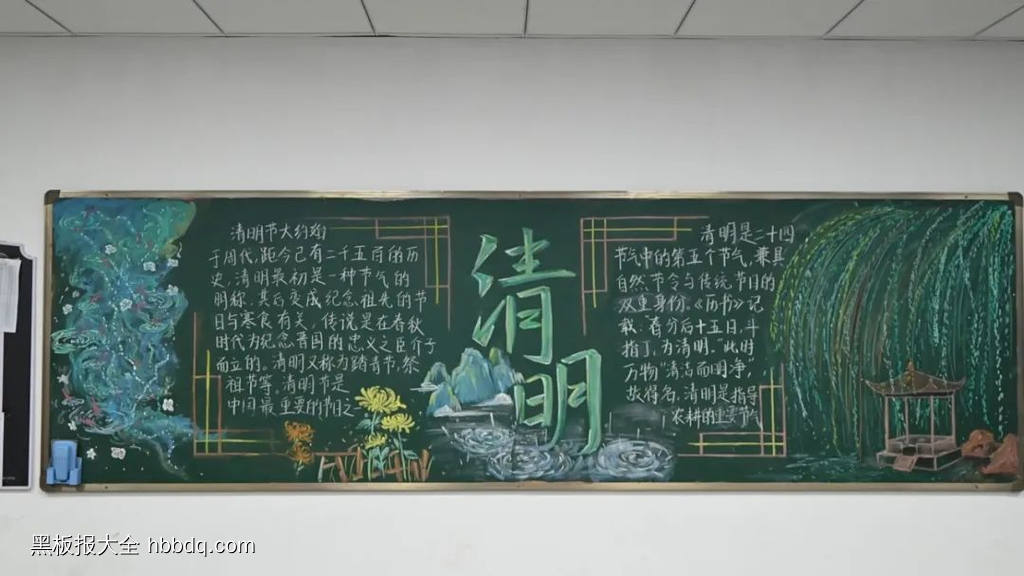 清明节大约始
于周代，距今已有二千五百的历
史，清明最初是一种节气的
明称，其后变成纪念祖先的节
日与寒食有关，传说是在春秋
时代为纪念晋国的忠义之臣介子
而立的。清明又称为踏青节，祭
祖节等，清明节是
中国最重要的节日之一
清明
清明是二十四
节气中的第五个节气，兼具
自然节令与传统节日的
双重身份。《历书》记
载：春分后十五日，斗
指丁，为清明。"此时
万物"清洁而明净，
故得名，清明是指导
农耕的重要节气
黑板报大全 hbbdq.com